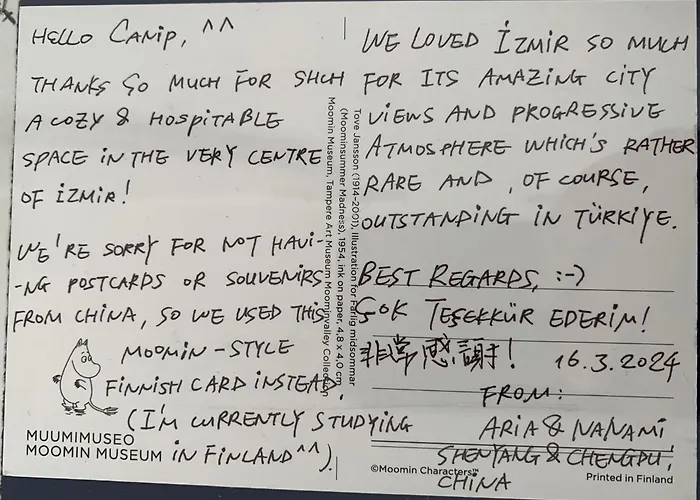 HELLO CANIP, ^^
THANKS SO MUCH FOR SHCH
A COZY & HOSPITABLE
SPACE IN THE VERY CENTRE
OF İZMİR!
WE'RE SORRY FOR NOT HAVI-
-NG POSTCARDS OR SOUVENIRS
FROM CHINA, SO WE USED THIS
MOOMIN-STYLE
FINNISH CARD INSTEAD.
(I'M CURRENTLY STUDYING
IN FINLAND^^).
MUUMIMUSEO
MOOMIN MUSEUM
Tove Jansson (1914-2001), Illustration for Farlig midsommar
(Moominsummer Madness), 1954, ink on paper, 4,8 x 4,0 cm
Moomin Museum, Tampere Art Museum Moominvalley Collection
WE LOVED İZMİR SO MUCH
FOR ITS AMAZING CITY
VIEWS AND PROGRESSIVE
ATMOSPHERE WHICH'S RATHER
RARE AND, OF COURSE,
OUTSTANDING IN TÜRKİYE.
BEST REGARDS, :-)
ÇOK TEŞEKKÜR EDERİM!
非常感謝! 16.3.2024
FROM:
ARIA & NANAMI
SHENYANG & CHENGDU,
CHINA
©Moomin Characters™
Printed in Finland